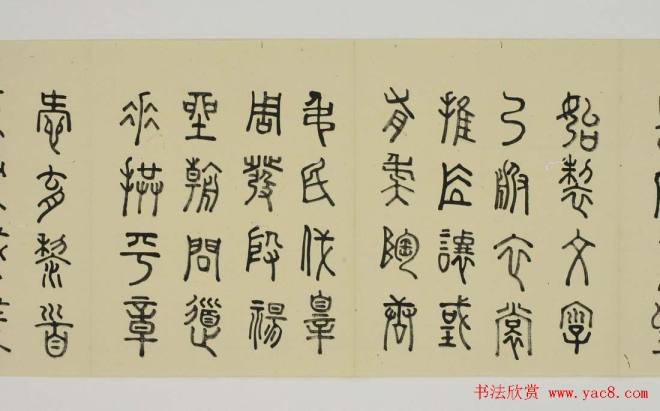 始製文字
乃服衣裳
推位讓國
有虞陶唐
弔民伐辠
周發殷湯
坐朝問道
垂拱平章
愛育黎首
书法欣赏 www.yac8.com